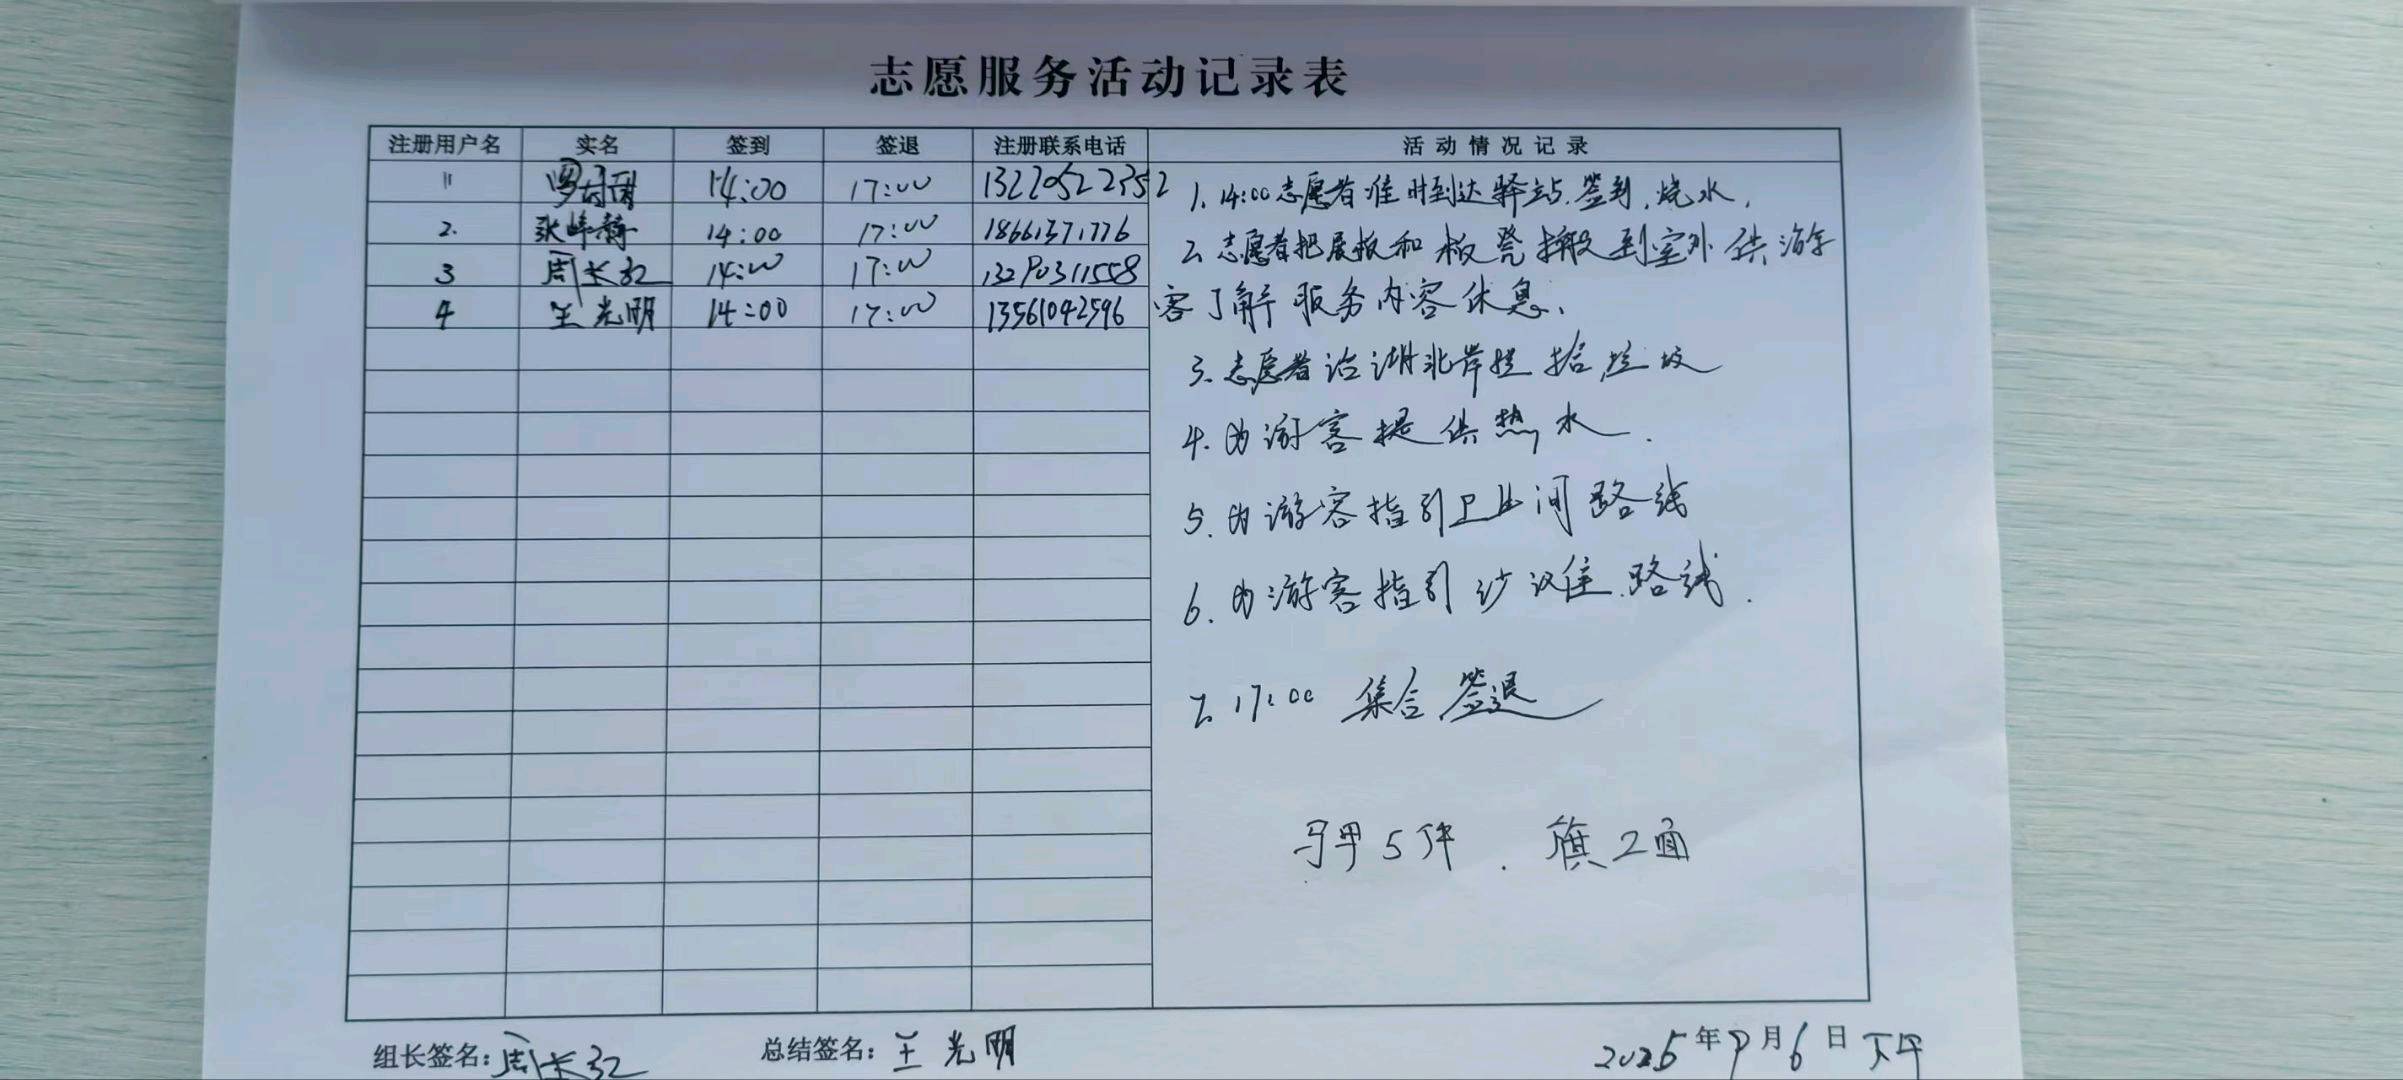 志愿服务活动记录表
注册用户名 实名 签到 签退 注册联系电话 活动情况记录
14:00 17:00 13220522352
2. 张峰静 14:00 17:00 18661371776
3 周长红 14:00 17:00 13290311558
4 王光明 14:00 17:00 13561042596
1、14:00志愿者准时到达驿站.签到,烧水,
2、志愿者把展板和板凳搬到室外供游
客了解服务内容休息、
3、志愿者沿湖北岸捡拾垃圾
4.为游客提供热水.
5.为游客指引卫生间路线
6.为游客指引路线.
7、17:00 集合签退
马甲5件.旗2面
组长签名:周长红 总结签名:王光明 2025年9月6日下午